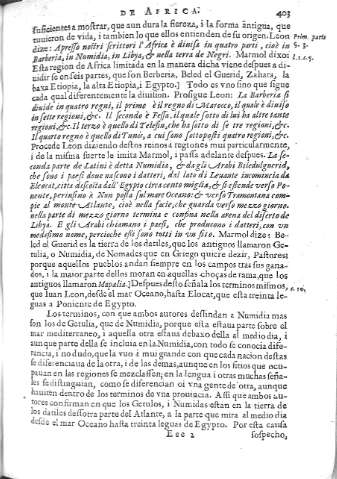 DE AFRICA. 403
sufficientes a mostrar, que aun dura la fiereza, i la forma antigua, que
tuuieron de vida, i tambien lo que ellos entienden de su origen. Leon Prim. parte
dize: Apresso nostri scrittori l'Africa è diuisa in quatro parti, cioè in §. 3.
Barberia, in Numidia, in Libya, & nella terra de Negri. Marmol dize: l. 1. c. 5.
Esta region de Africa limitada en la manera dicha viene despues a di-
uidir se en seis partes, que son Berberia, Beled el Guerid, Zahara, la
baxa Etiopia, la alta Etiopia, i Egypto.] Todo es vno sino que sigue
cada qual diferentemente la diuision. Prosigue Leon: La Barberia si
diuide in quatro regni, il primo è il regno di Marocco, il quale è diuiso
in sette regioni, &c. Il secondo è Fessa, il quale sotto di lui ha altre tante
regioni, &c. Il terzo è quello di Telesin, che ha sotto di se tre regioni, &c.
Il quarto regno è quello di Tunis, a cui sono sottoposti quatro regioni, &c.
Procede Leon diziendo destos reinos i regiones mui particularmente,
i de la misma suerte le imita Marmol, i passa adelante despues. La se-
conda parte de Latini è detta Numidia, & da gli Arabi Biledulgerid,
che sono i paesi doue nascono i datteri, dal lato di Leuante incomincia da
Eleocat, citta discosta dall' Egypto circa cento miglia, & si estende verso Po-
nente, perinsino à Nun posta su'l mare Oceano: & verso Tramontana com-
pie al monte Atlante, cioè nella facie, che guarda verso mezzo giorno,
nella parte di mezzo giorno termina e confina nella arena del diserto de
Libya. E gli Arabi chiamano i paesi, che producono i datteri, con vn
medesimo nome, percioche essi sono tutti in vn sito. Marmol dize: Be-
led el Guerid es la tierra de los datiles, que los antiguos llamaron Ge-
tulia, o Numidia, de Nomades que en Griego quiere dezir, Pastores:
porque aquellos pueblos andan siempre en los campos tras sus gana-
dos, i la maior parte dellos moran en aquellas choças de rama, que los
antiguos llamaron Mapalia.] Despues desto señala los terminos mismos, c. 10.
que Iuan Leon, desde el mar Oceano, hasta Elocat, que esta treinta le-
guas a Poniente de Egypto.
Los terminos, con que ambos autores deslindan a Numidia mas
son los de Getulia, que de Numidia, porque esta estaua parte sobre el
mar mediterraneo, i aquella otra estaua debaxo della al medio dia, i
aunque parte della se incluia en la Numidia, con todo se conocia dife-
rencia, i no dudo, que la vuo i mui grande con que cada nacion destas
se diferenciaua de la otra, i de las demas, aunque en los sitios que ocu-
pauan en las regiones se mezclassen; en la lengua i otras muchas seña-
les se distinguian, como se diferencian oi vna gente de otra, aunque
habiten dentro de los terminos de vna prouincia. Assi que ambos au-
tores confirman en que los Getulos, i Numidas estan en la tierra de
los datiles dessotra parte del Atlante, a la parte que mira al medio dia
desde el mar Oceano hasta treinta leguas de Egypto. Por esta causa
Eee 2 sospecho,